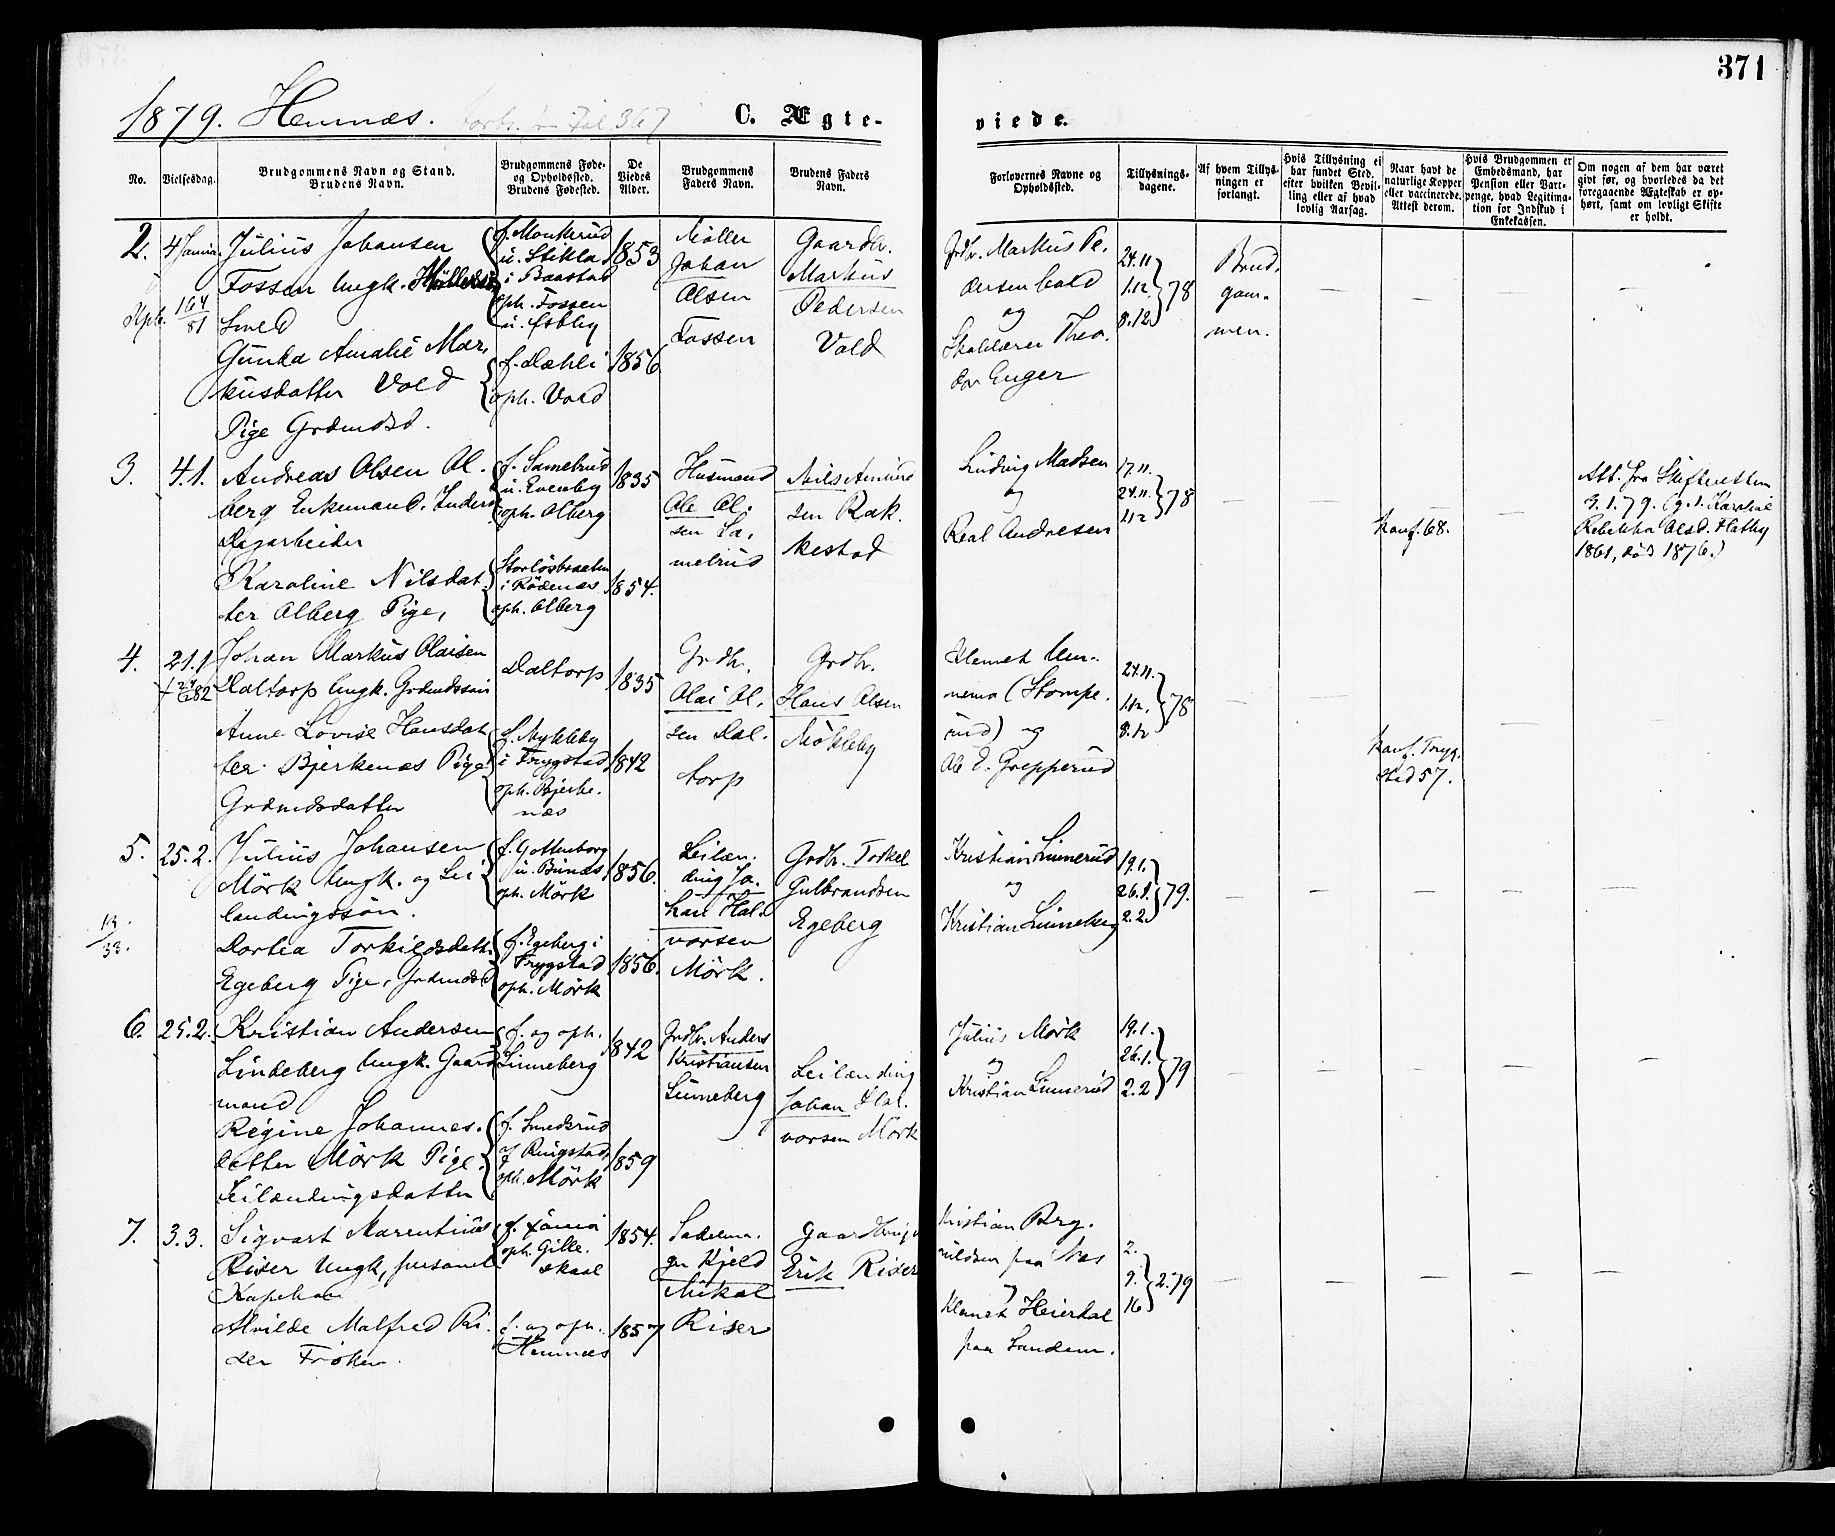 371
1879. Hemnæs. 367 C. Ægteviede.
No. Vielsesdag. Brudgommens Navn og Stand. Brudens Navn. Brudgommens Føde- og Opholdssted. Brudens Fødested. De Viedes Alder. Brudgommens Faders Navn. Brudens Faders Navn.
Forlovernes Navne og Opholdssted. Tillysnings-dagene. Af hvem Tillysningen er forlangt. Hvis Tillysning ei har fundet Sted, efter hvilken Bevilling eller af hvad lovlig Aarsag. Naar havt de naturlige Kopper eller vaccinerede. Attest derom. Hvis Brudgommen er Embedsmand, har Pension eller Vartpenge, hvad Legitimation for Indskud i Enkekassen. Om nogen af dem har været givt før, og hvorledes da det foregaaende Ægteskab er ophørt, samt om lovligt Skifte er holdt.
2. 4 Januar
Julius Johansen
Fossen Ungk.
Smed
Gunda Amalie Mar-
kusdatter Vold
Pige Grdmdsd.
f. Monkerud
i Baastad
oph. Fossen
f. Dæhli
oph. Vold
1853
1856
Møller
Johan
Olsen
Fossen
Gaardbr.
Markus
Pedersen
Vold
Grdbr. Markus Pe-
dersen Vold
og
Skolelærer Theo-
dor Enger
24.11
1.12
8.12
78
Brud-
gom-
men.
3. 4.1.
Andreas Olsen Ol-
berg Enkemand. Inderst
Dagarbeider
Karoline Nilsdat-
ter Olberg Pige,
f. Samebrud
oph. Olberg
i Rødenæs
oph. Olberg
1835
1854.
Husmand
Ole Ol-
sen Sa-
mebrud
Nils Amund
sen Rak-
kestad
Ludvig Madsen
og
Real Andresen
17.11.
24.11.
1.12
78
konf. 68.
Att. fra Skifteretten
3.1.79. (g. 1. Karoline
Rebekka Olsd. Flatby
1861, død 1876.)
4. 21.1
Johan Markus Olaisen
Daltorp Ungk. Grdmdssøn
Anne Lovise Hansdat
ter Bjerkenæs Pige
Grdmdsdatter
Daltorp
f. Nykleby
i Trygstad
oph. Bjerke-
næs
1835
1842
Grdbr.
Olai Ol-
sen Dal-
torp
Grdbr.
Hans Olsen
Nökleby
og
Ole E. Grepperud
24.11.
1.12.
8.12
78
konf. Tryg-
stad 57.
5. 25.2.
13
33.
Julius Johansen
Mörk Ungk. og Lei
lændingssøn.
Dortea Torkildsdatt.
Egeberg Pige, Grdmdsd
f. Gottenborg
oph. Mörk
f. Egeberg i
Trygstad
oph. Mörk
1856.
1856.
Leilæn-
ding Jo-
han Hal-
vorsen
Mörk.
Grdbr. Torkel
Gulbrandsen
Egeberg
Kristian Linnerud
og
Kristian Linneberg
19.1.
26.1.
2.2.
79.
6. 25.2.
Kristian Andersen
Lindeberg Ungk. Gaard
mand
Regine Johannes-
datter Mörk Pige.
Leilændingsdatter
f. og oph.
Linneberg
f. Smedsrud
af Ringstad
oph. Mörk
1842
1859
Grdbr. Anders
Kristiansen
Linneberg
Leilænding
Johan Hal-
vorsen Mörk
Julius Mörk
og
Kristian Linnerud
19.1.
26.1.
2.2
79
7. 3.3.
Sigvart Marentius
Riser Ungk, personel
Kapellan
Alvilde Malfred Ri-
ser Frøken.
oph. Gilde-
skaal
f. og oph.
Hemnæs
1854.
1857
Kjeld
Mikal
Riser
Erik Riser
paa Næs
og
Klemet Heierdal
paa Sandem.
2.
9.
16
2.79